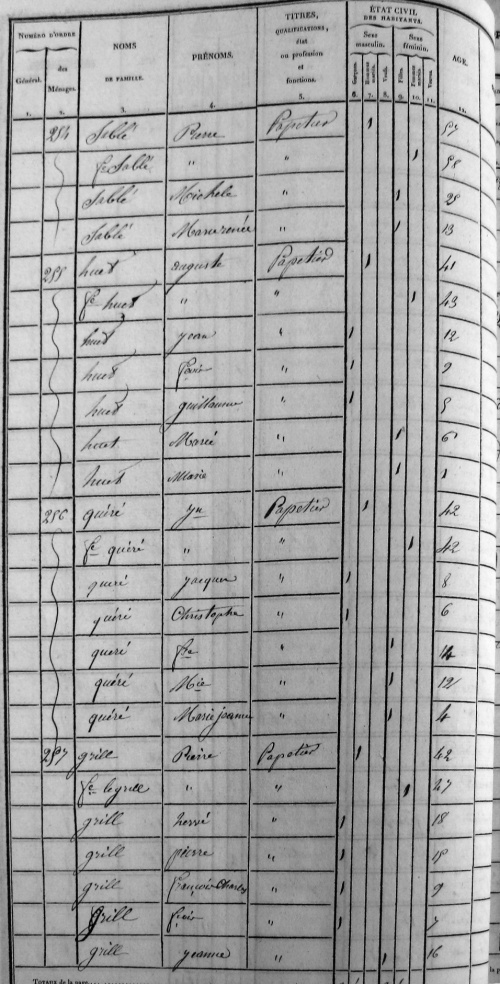 NUMÉRO D'ORDRE
Général. des Ménages.
NOMS
DE FAMILLE.
PRÉNOMS.
TITRES,
QUALIFICATIONS,
état
ou profession
et
fonctions.
ÉTAT CIVIL
DES HABITANTS.
Sexe masculin. Sexe féminin.
Garçons. Hommes mariés. Veufs. Filles. Femmes mariées. Veuves.
AGE.
1. 2. 3. 4. 5. 6. 7. 8. 9. 10. 11. 12.
254 Sablé Pierre Papetier 1 57
fe Sablé " " 1 58
Sablé Michele " 1 25
Sablé Marie renée " 1 13
255 huet auguste Papetier 1 41
fe huet " " 1 43
huet jean " 1 12
huet fois " 1 9
huet guillaume " 1 5
huet Marie " 1 6
huet Marie " 1 1
256 quéré yn Papetier 1 42
fe quéré " " 1 42
queré jacques " 1 8
quéré Christophe " 1 6
queré fse " 1 14
quéré Mie " 1 12
quéré Marie jeanne " 1 4
257 grill Pierre Papetier 1 42
fe le grill " " 1 47
grill hervé " 1 18
grill pierre " 1 15
grill François Charles " 1 9
grill fois " 1 7
grill jeanne " 1 16
TOTAUX de la page